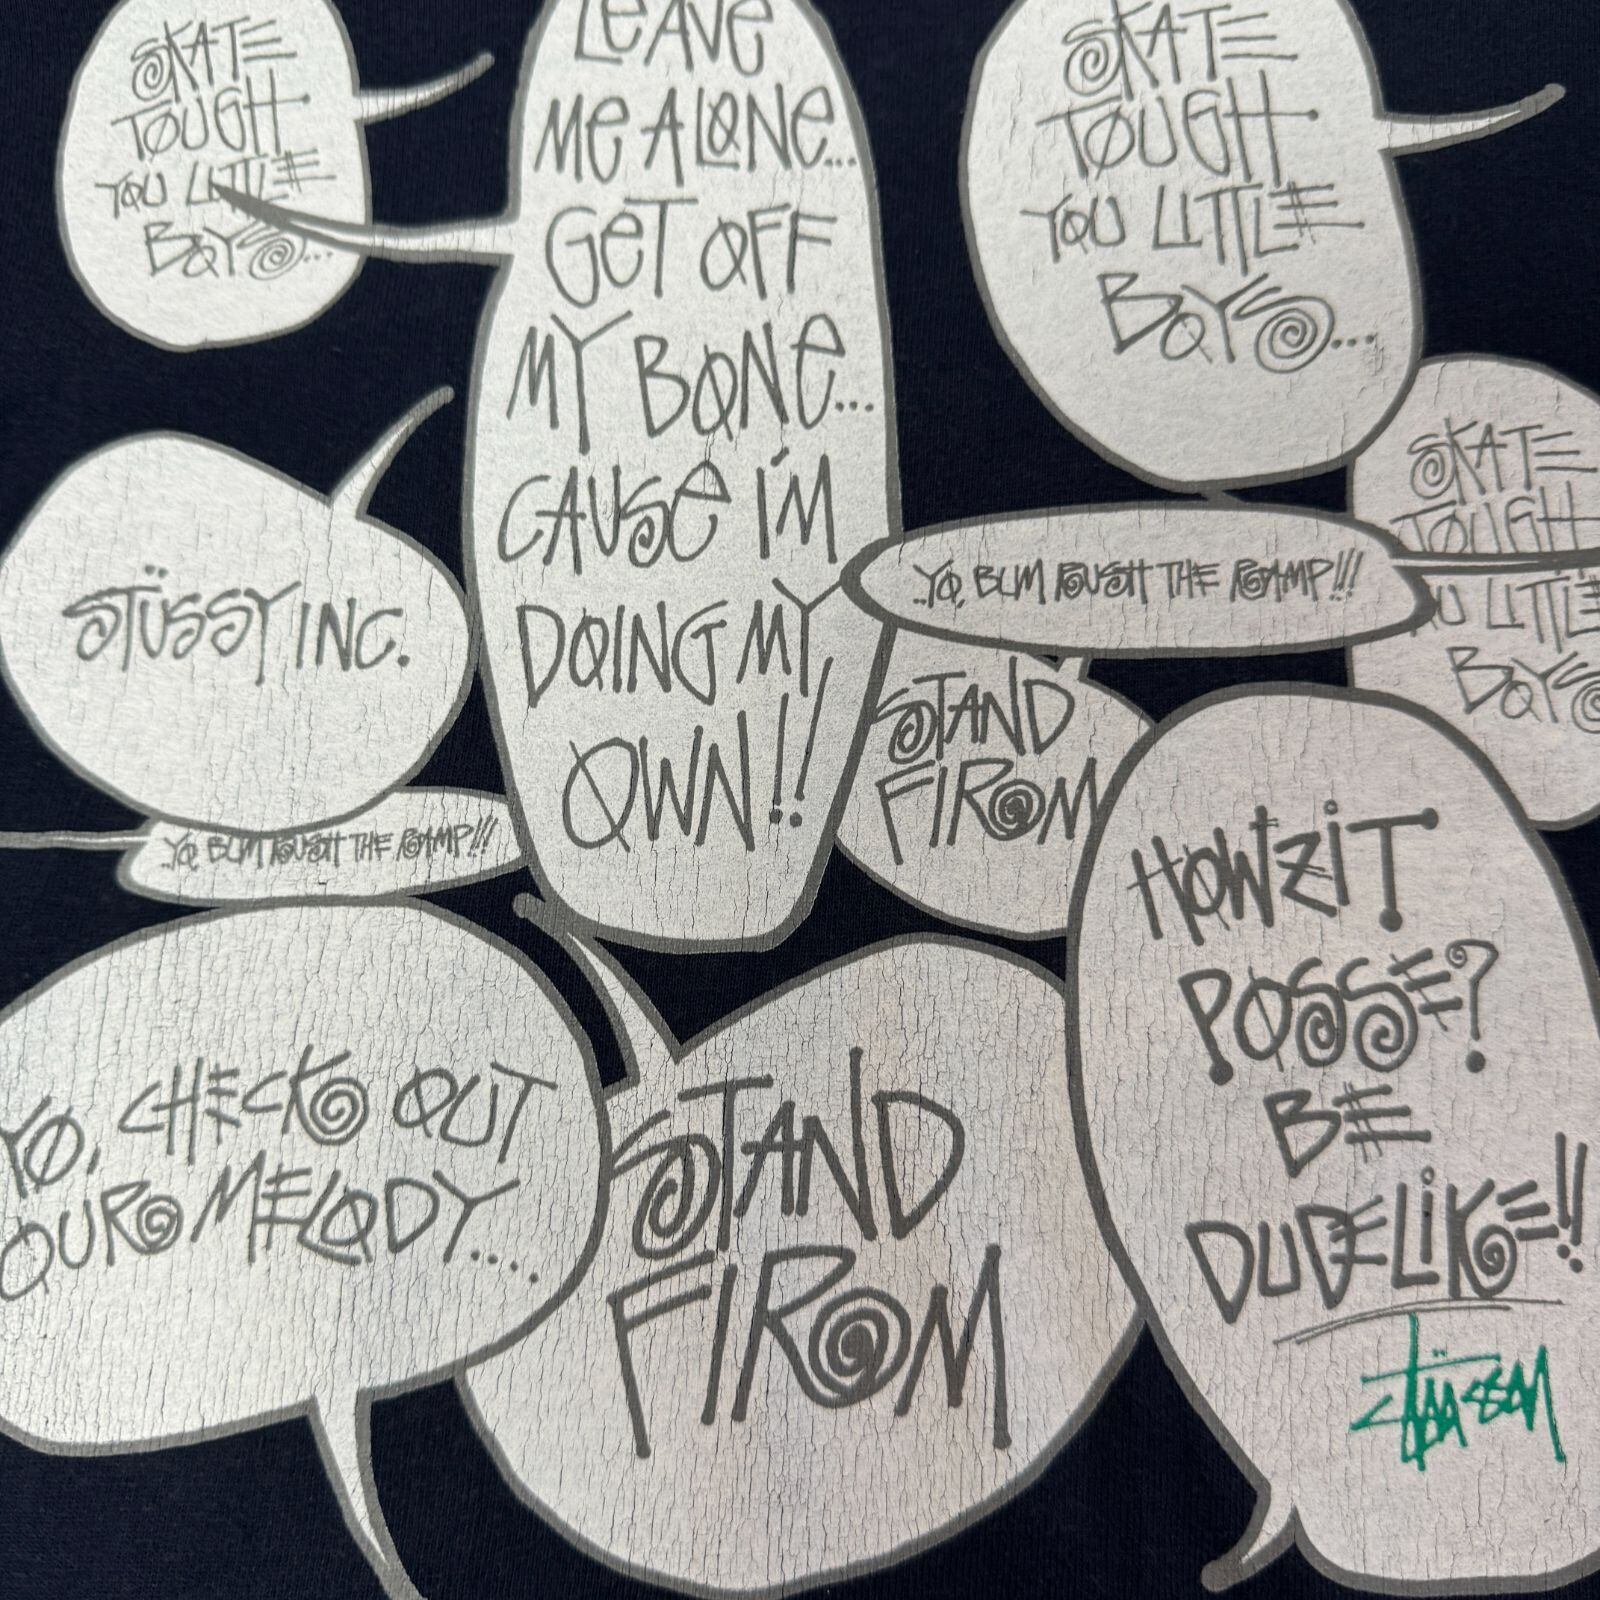 SKATE
TOUGH
YOU LITTLE
BOYS...
LEAVE
ME ALONE...
GET OFF
MY BONE...
CAUSE I'M
DOING MY
OWN!!
SKATE
TOUGH
YOU LITTLE
BOYS...
SKATE
TOUGH
U LITTLE
BOYS
STÜSSY INC.
..YO, BUM RUSH THE RAMP!!!
STAND
FIRM
..YO, BUM RUSH THE RAMP!!!
HOWZIT
POSSE?
BE
DUDELIKE!!
YO, CHECK OUT
OUR MELODY....
STAND
FIRM